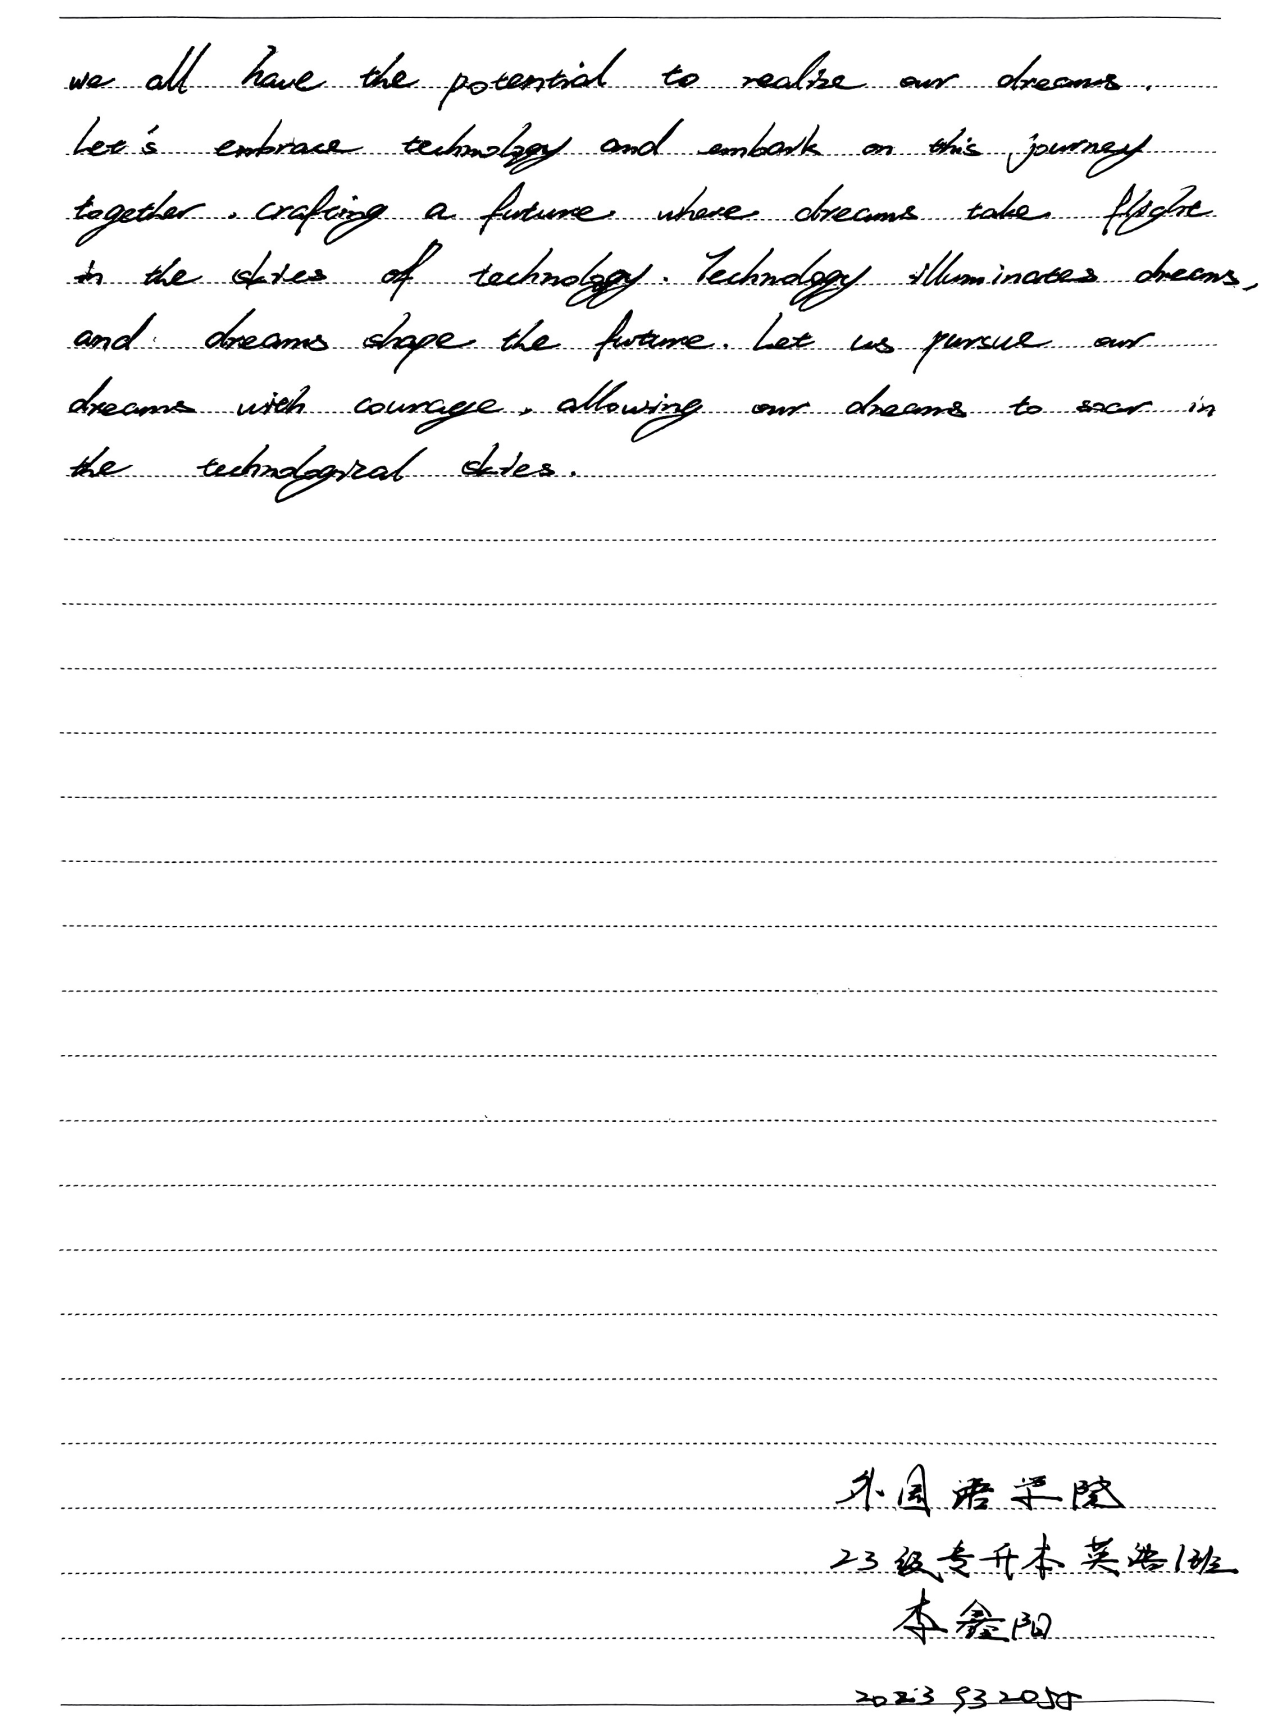 we all have the potential to realize our dreams.
Let's embrace technology and embark on this journey
together, crafting a future where dreams take flight
in the skies of technology. Technology illuminates dreams,
and dreams shape the future. Let us pursue our
dreams with courage, allowing our dreams to soar in
the technological skies.
外国语学院
23级专升本英语1班
李鑫阳
2023932054